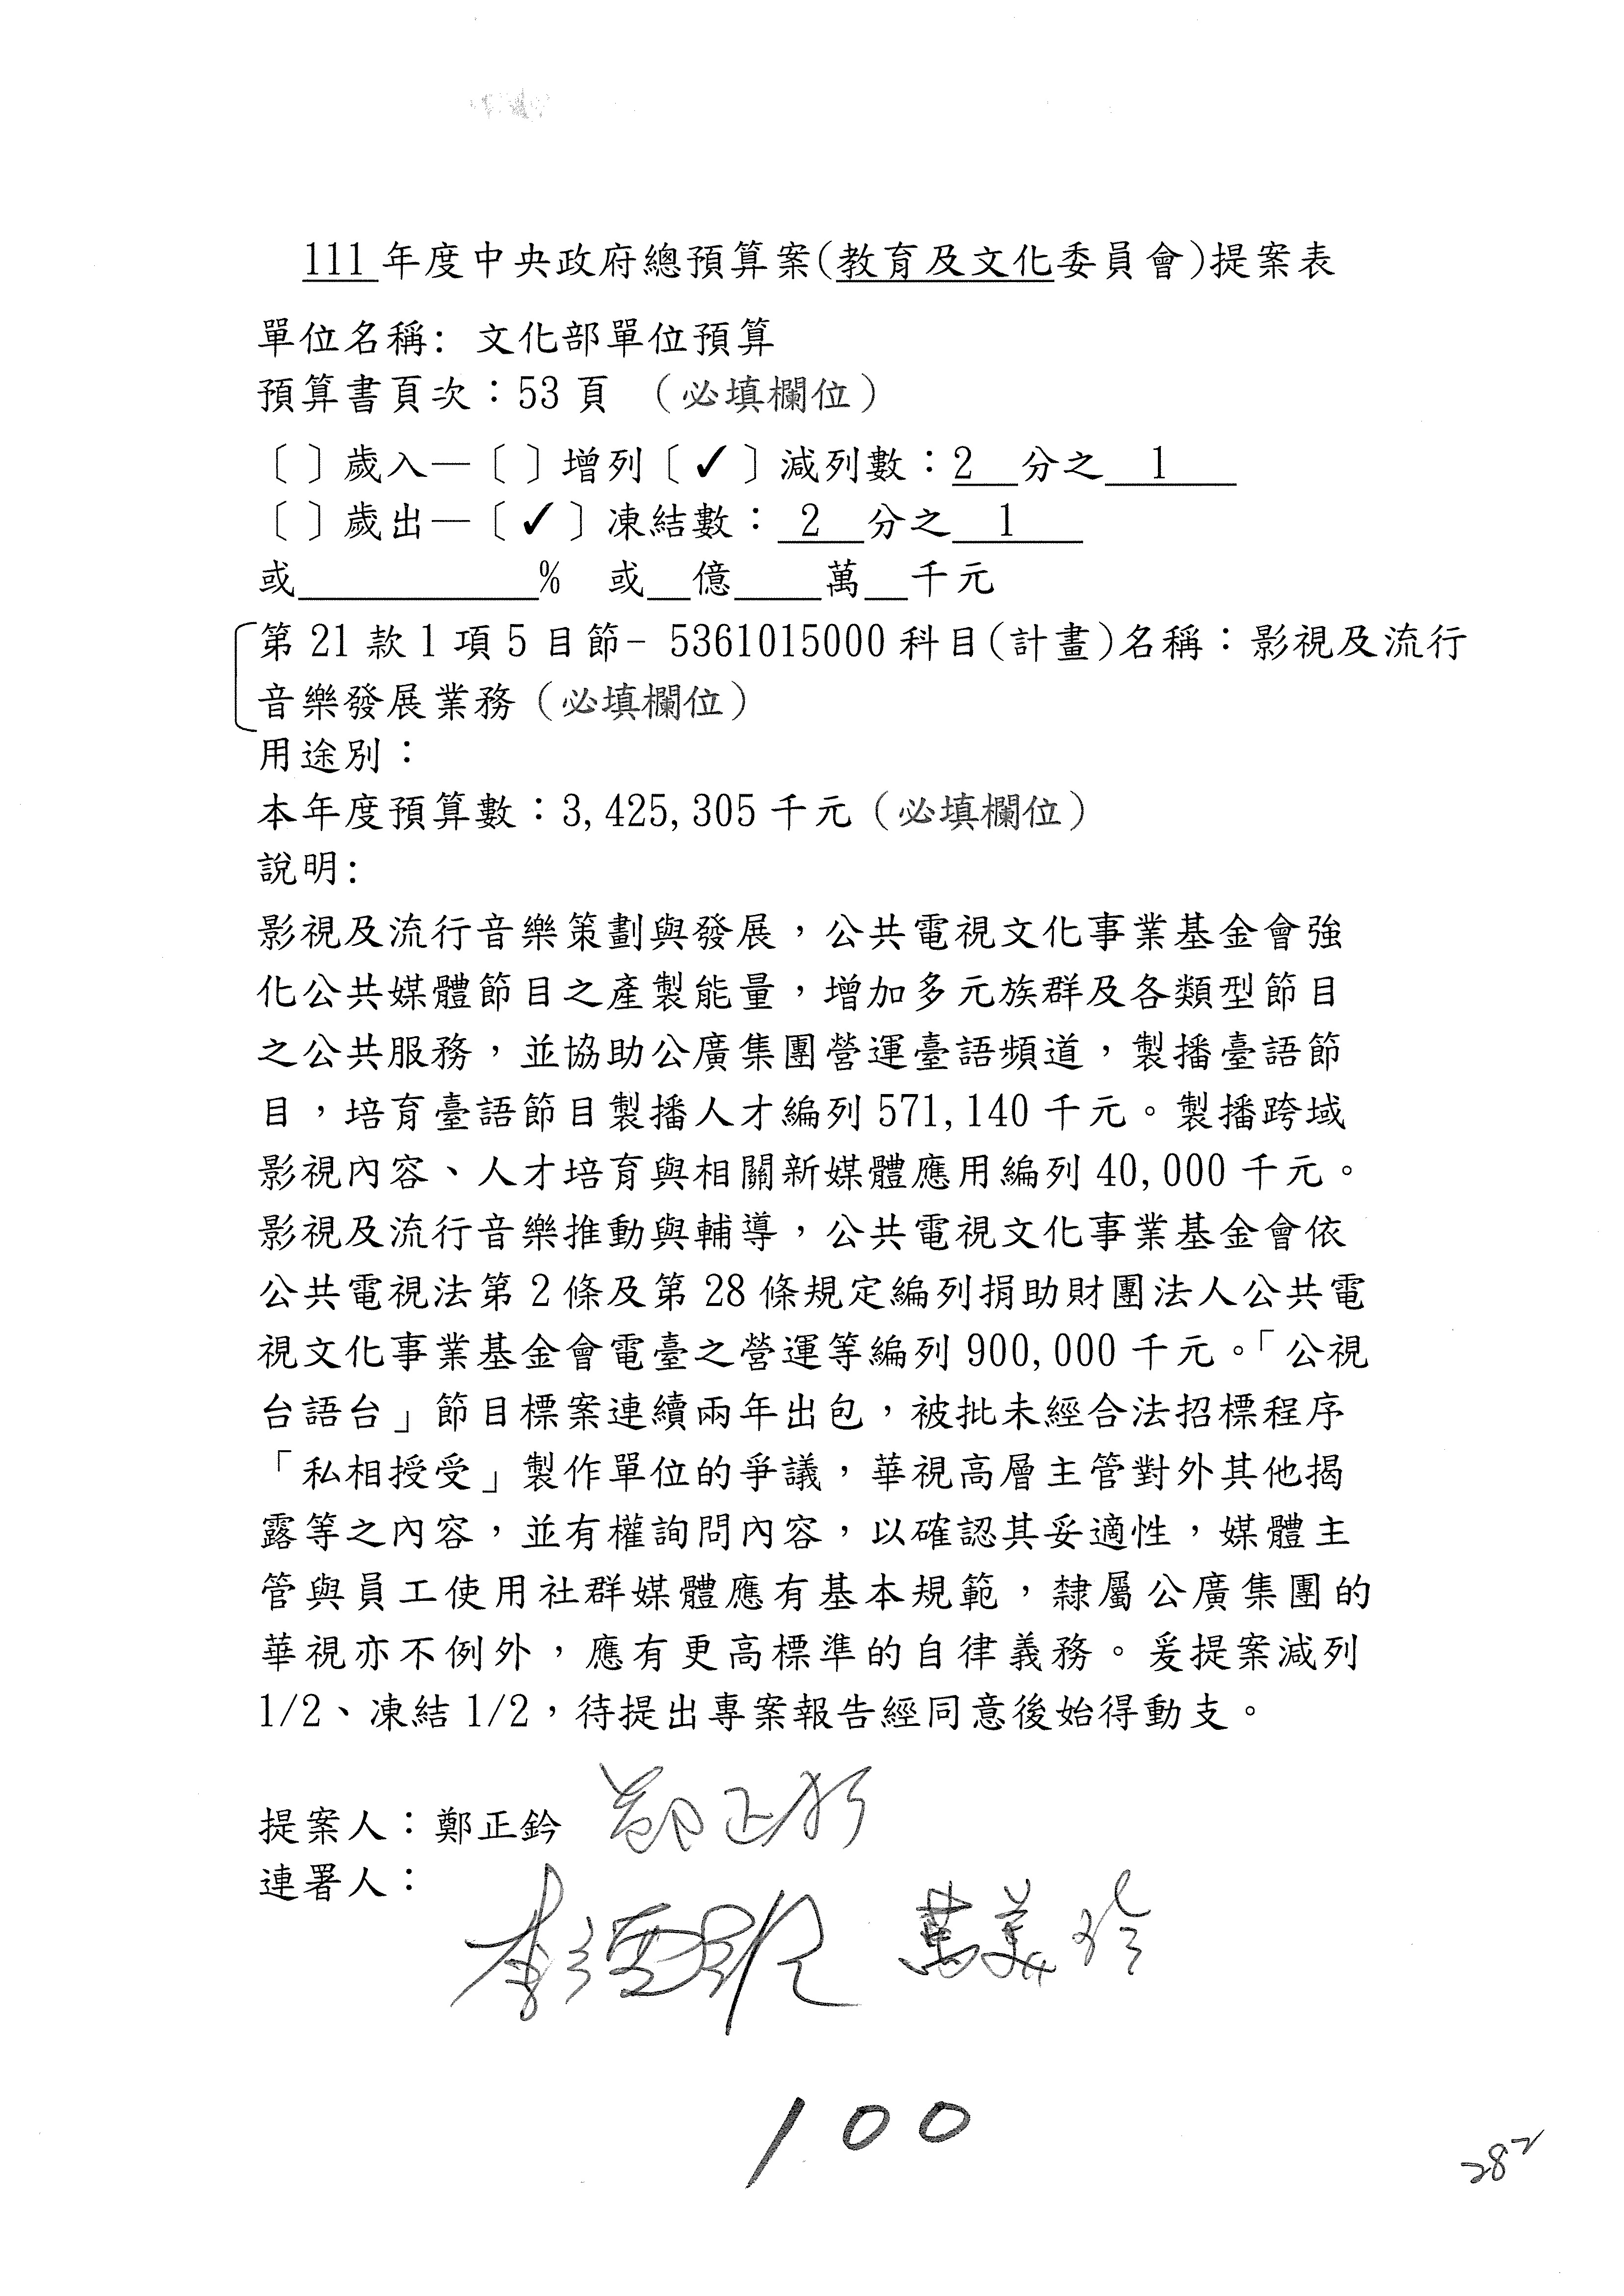 111年度中央政府總預算案(教育及文化委員會)提案表
單位名稱: 文化部單位預算
預算書頁次：53頁 （必填欄位）
〔 〕歲入—〔 〕增列〔✓〕減列數：2 分之 1
〔 〕歲出—〔✓〕凍結數： 2 分之 1
或＿＿＿＿% 或＿億＿＿萬＿千元
第21款1項5目節- 5361015000科目(計畫)名稱：影視及流行
音樂發展業務（必填欄位）
用途別：
本年度預算數：3,425,305千元（必填欄位）
說明:
影視及流行音樂策劃與發展，公共電視文化事業基金會強
化公共媒體節目之產製能量，增加多元族群及各類型節目
之公共服務，並協助公廣集團營運臺語頻道，製播臺語節
目，培育臺語節目製播人才編列571,140千元。製播跨域
影視內容、人才培育與相關新媒體應用編列40,000千元。
影視及流行音樂推動與輔導，公共電視文化事業基金會依
公共電視法第2條及第28條規定編列捐助財團法人公共電
視文化事業基金會電臺之營運等編列900,000千元。「公視
台語台」節目標案連續兩年出包，被批未經合法招標程序
「私相授受」製作單位的爭議，華視高層主管對外其他揭
露等之內容，並有權詢問內容，以確認其妥適性，媒體主
管與員工使用社群媒體應有基本規範，隸屬公廣集團的
華視亦不例外，應有更高標準的自律義務。爰提案減列
1/2、凍結1/2，待提出專案報告經同意後始得動支。
提案人：鄭正鈐 鄭正鈐
連署人：
萬美玲
100
282